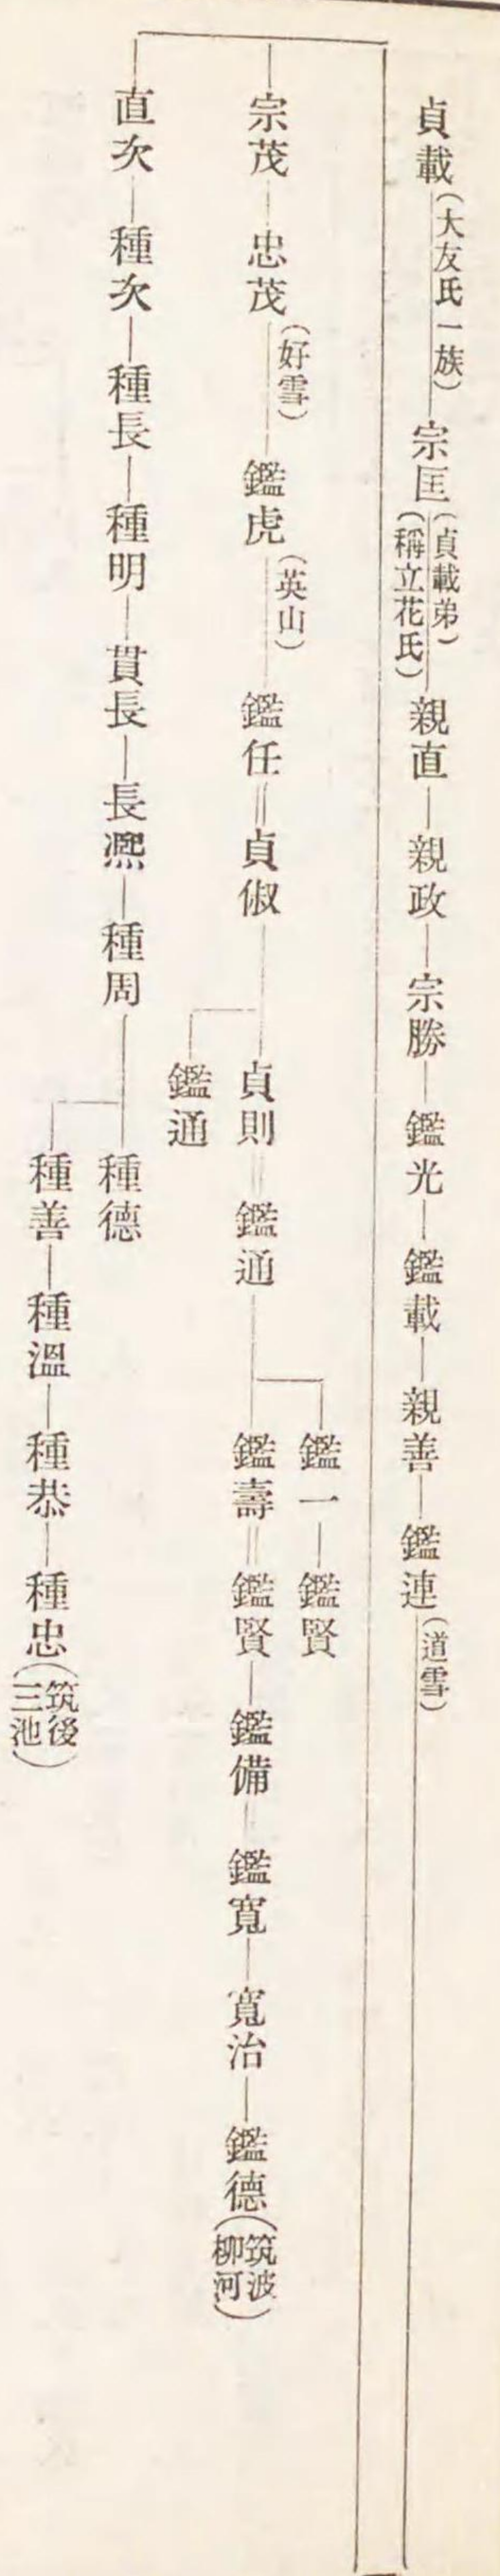 貞載(大友氏一族)宗匡(貞載弟)(稱立花氏)親直親政宗勝鑑光鑑載親善鑑連(道雪)
宗茂忠茂(好雪)鑑虎(英山)鑑任貞俶
貞則鑑通
鑑一鑑賢
鑑壽鑑賢鑑備鑑寬寬治鑑德(筑波柳河)
鑑通
直次種次種長種明貫長長凞種周
種德
種善種溫種恭種忠(筑後三池)